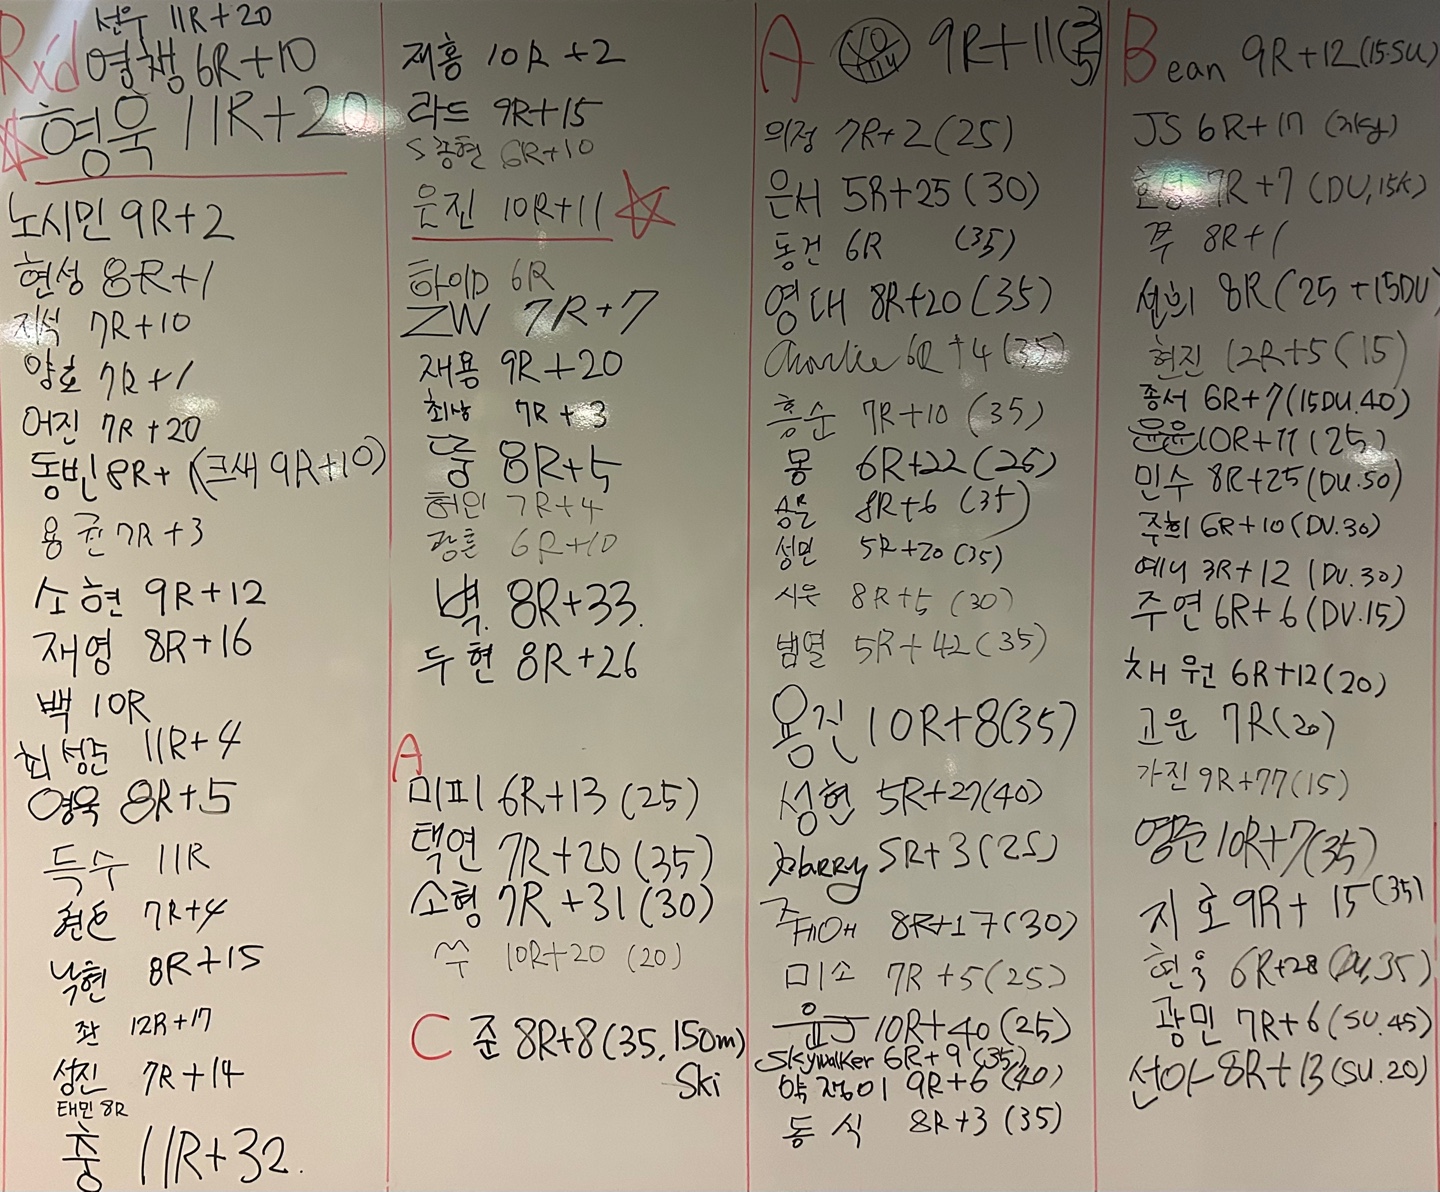 Rxd 선우 11R+20
영챙 6R+10
형욱 11R+20
노시민 9R+2
현성 8R+1
지석 7R+10
양호 7R+1
어진 7R+20
동빈 8R+1 (크새 9R+10)
용균 7R+3
소현 9R+12
재영 8R+16
백 10R
최성준 11R+4
영욱 8R+5
득수 11R
7R+4
낙현 8R+15
좌 12R+17
성진 7R+14
태민 8R
충 11R+32.
재홍 10R+2
라드 9R+15
S종현 6R+10
은진 10R+11
하이D 6R
ZW 7R+7
재용 9R+20
최상 7R+3
뚱 8R+5
허인 7R+4
광훈 6R+10
벽. 8R+33.
두현 8R+26
A
미피 6R+13 (25)
택연 7R+20 (35)
소형 7R+31 (30)
쑤 10R+20 (20)
C 준 8R+8 (35, 150m)
Ski
A 9R+11(35)
의정 7R+2 (25)
은서 5R+25 (30)
동건 6R (35)
영대 8R+20 (35)
Charlie 6R+4 (35)
홍순 7R+10 (35)
몽 6R+22 (25)
8R+6 (35)
성민 5R+20 (35)
시우 8R+5 (30)
범열 5R+42 (35)
용진 10R+8 (35)
성현 5R+27 (40)
5R+3 (25)
쥬에애 8R+17 (30)
미소 7R+5 (25)
10R+40 (25)
Skywalker 6R+9 (35)
약쟁이 9R+6 (40)
동식 8R+3 (35)
Bean 9R+12 (15.SU)
JS 6R+17
효성 7R+7 (DU, 15K)
쭈 8R+1
선희 8R (25+15DU)
현진 12R+5 (15)
종서 6R+7 (15DU.40)
윤윤 10R+11 (25)
민수 8R+25 (DU.50)
주희 6R+10 (DU.30)
예니 3R+12 (DU.30)
주연 6R+6 (DU.15)
채원 6R+12 (20)
고운 7R (20)
가진 9R+77 (15)
영준 10R+7 (35)
지호 9R+15 (35)
현욱 6R+28 (DU,35)
광민 7R+6 (SU.45)
선아 8R+13 (SU.20)